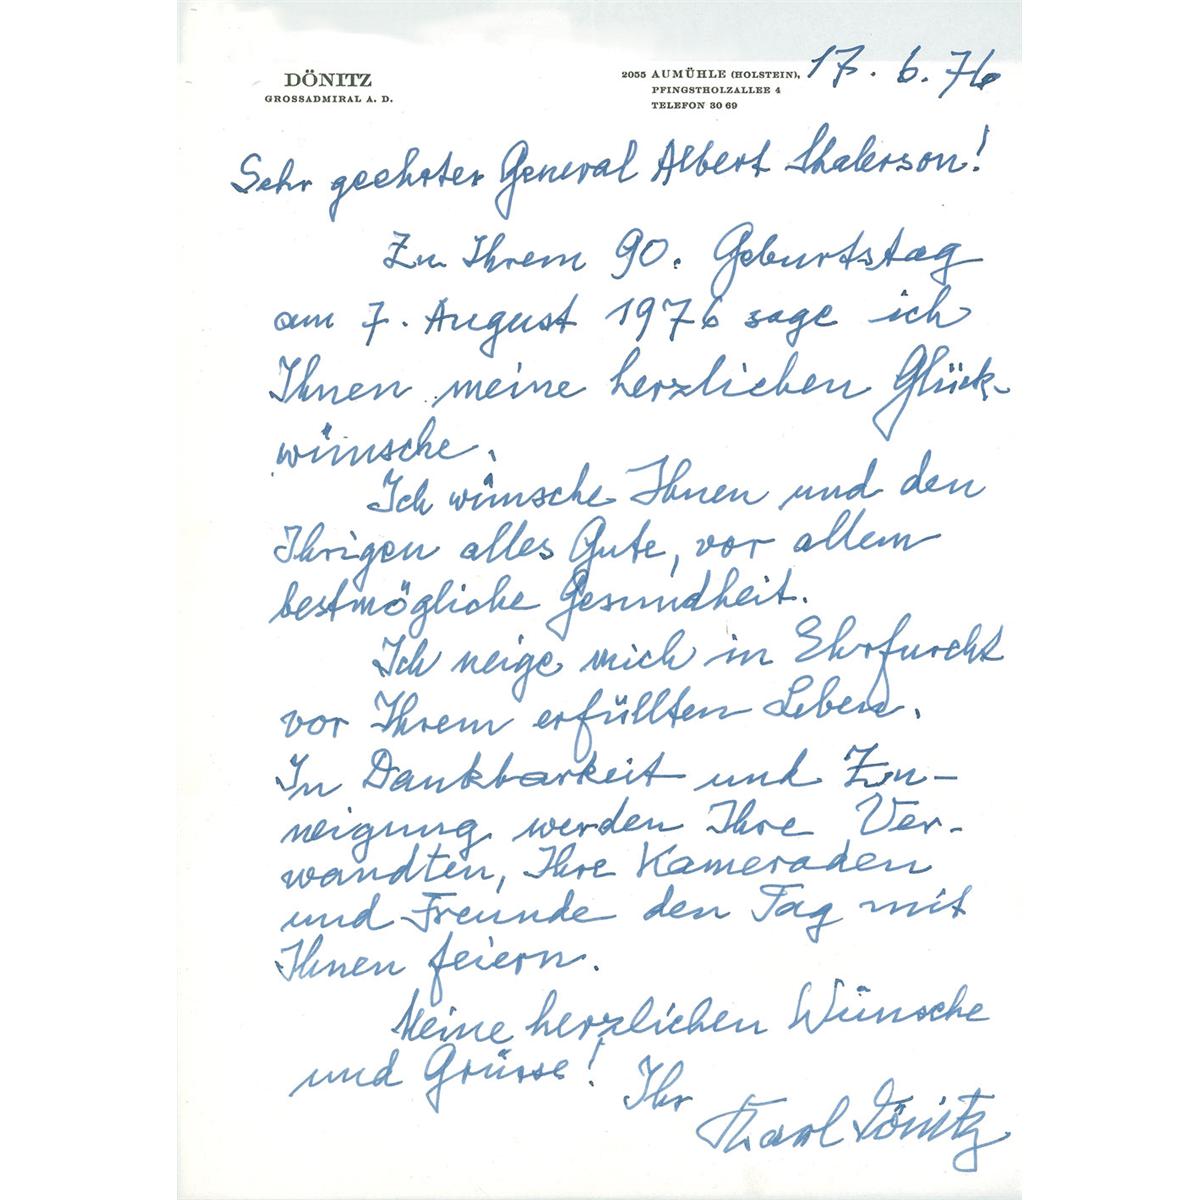 DÖNITZ
GROSSADMIRAL A. D.
2055 AUMÜHLE (HOLSTEIN), 17. 6. 76
PFINGSTHOLZALLEE 4
TELEFON 30 69
Sehr geehrter General Albert
Zu Ihrem 90. Geburtstag
am 7. August 1976 sage ich
Ihnen meine herzlichen Glück-
wünsche.
Ich wünsche Ihnen und den
Ihrigen alles Gute, vor allem
bestmögliche Gesundheit.
Ich neige mich in Ehrfurcht
vor Ihrem erfüllten Leben.
In Dankbarkeit und Zu-
neigung werden Ihre Ver-
wandten, Ihre Kameraden
und Freunde den Tag mit
Ihnen feiern.
Meine herzlichen Wünsche
und Grüsse!
Ihr
Karl Dönitz